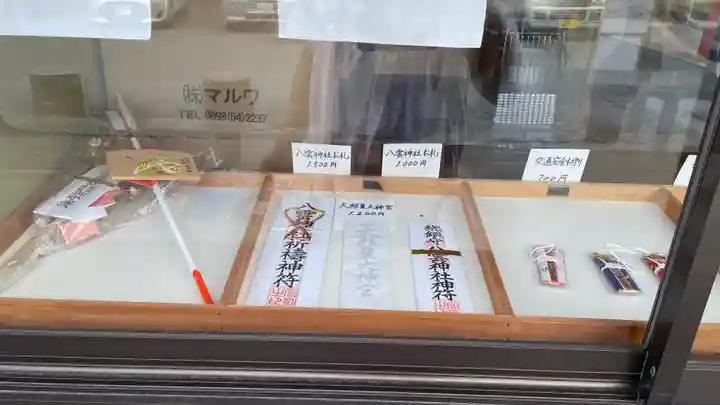 ㈱マルワ
TEL 0898(64)2237
八雲神社お札
1,500円
八雲神社お札
1,000円
交通安全お守り
700円
天照皇大神宮
1,200円
八雲神社祈祷神符
天照皇大神宮
総鎮守八雲神社神符